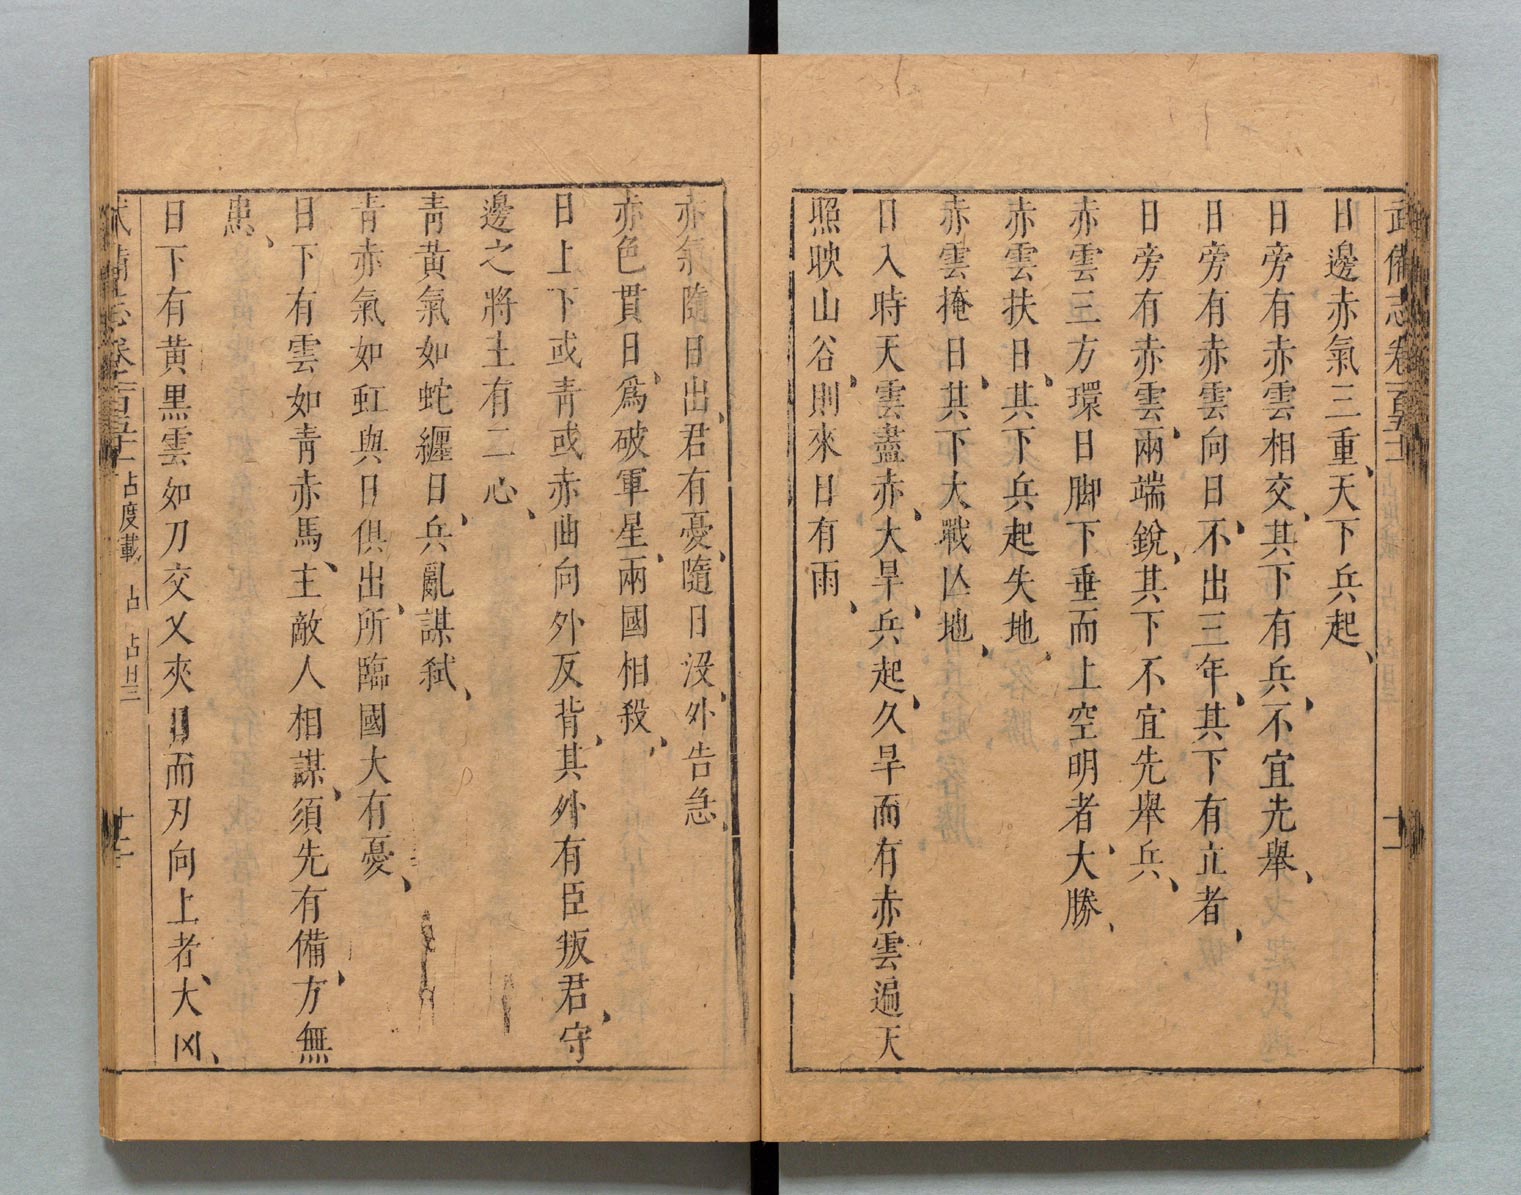 武備志卷
日邊赤氣三重、天下兵起、
日旁有赤雲相交、其下有兵、不宜先舉、
日旁有赤雲向日、不出三年、其下有立者、
日旁有赤雲、兩端銳、其下不宜先舉兵、
赤雲三方環日脚下垂而上空明者、大勝、
赤雲扶日、其下兵起失地、
赤雲掩日、其下大戰亾地、
日入時天雲盡赤、大旱、兵起、久旱而有赤雲遍天
照映山谷、則來日有雨、
赤氣隨日出、君有憂、隨日沒、外告急、
赤色貫日、爲破軍星、兩國相殺、
日上下或青或赤曲向外反背、其外有臣叛君、守
邊之將主有二心、
青黃氣如蛇纏日、兵亂謀弒、
青赤氣如虹與日俱出、所臨國大有憂、
日下有雲如青赤馬、主敵人相謀、須先有備、方無
患、
日下有黃黑雲如刀交叉夾日而刃向上者、大凶、
占度載 占 占日三